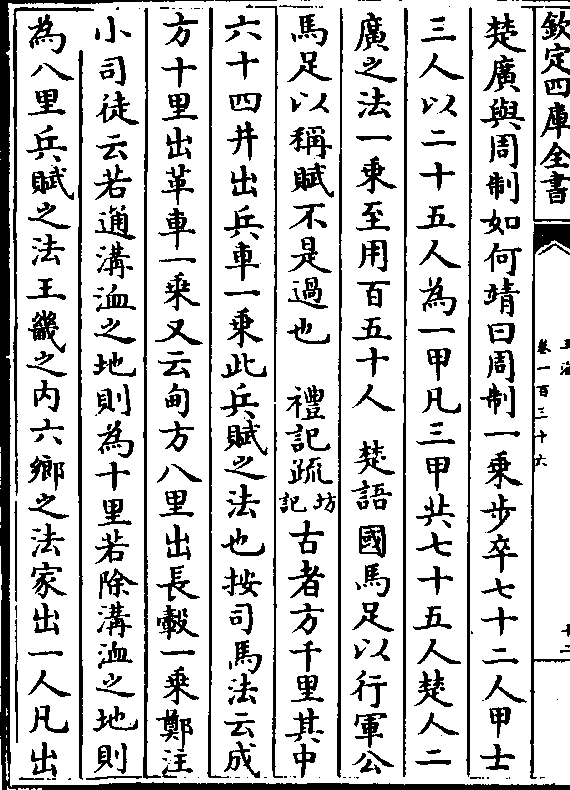 欽定四庫全書
玉海
卷一百三十六
十二
楚廣與周制如何靖曰周制一乘步卒七十二人甲士
三人以二十五人為一甲凡三甲共七十五人楚人二
廣之法一乘至用百五十人　楚語國馬足以行軍公
馬足以稱賦不是過也　禮記疏坊記古者方千里其中
六十四井出兵車一乘此兵賦之法也按司馬法云成
方十里出革車一乘又云甸方八里出長轂一乘鄭注
小司徒云若通溝洫之地則為十里若除溝洫之地則
為八里兵賦之法王畿之内六鄉之法家出一人凡出